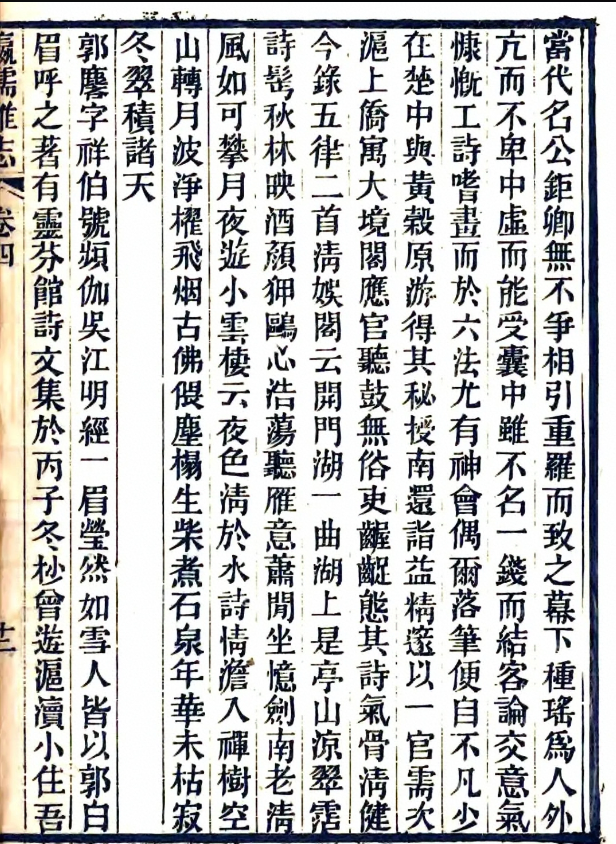 當代名公鉅卿無不爭相引重羅而致之幕下種瑤爲人外
亢而不卑中虛而能受囊中雖不名一錢而結客論交意氣
慷慨工詩嗜畫而於六法尤有神會偶爾落筆便自不凡少
在楚中與黃穀原游得其秘授南還詣益精邃以一官需次
滬上僑寓大境閣應官聽鼓無俗吏齷齪態其詩氣骨清健
今錄五律二首淸娛閣云開門湖一曲湖上是亭山涼翠霑
詩髩秋林映酒顔狎鷗心浩蕩聽雁意蕭閒坐憶劍南老淸
風如可攀月夜遊小雲棲云夜色淸於水詩情澹入禪樹空
山轉月波淨櫂飛烟古佛偎塵榻生柴煮石泉年華未枯寂
冬翠積諸天
郭麐字祥伯號頻伽吳江明經一眉瑩然如雪人皆以郭白
眉呼之著有靈芬館詩文集於丙子冬杪曾遊滬瀆小住吾
瀛壖雜志 卷四 十二